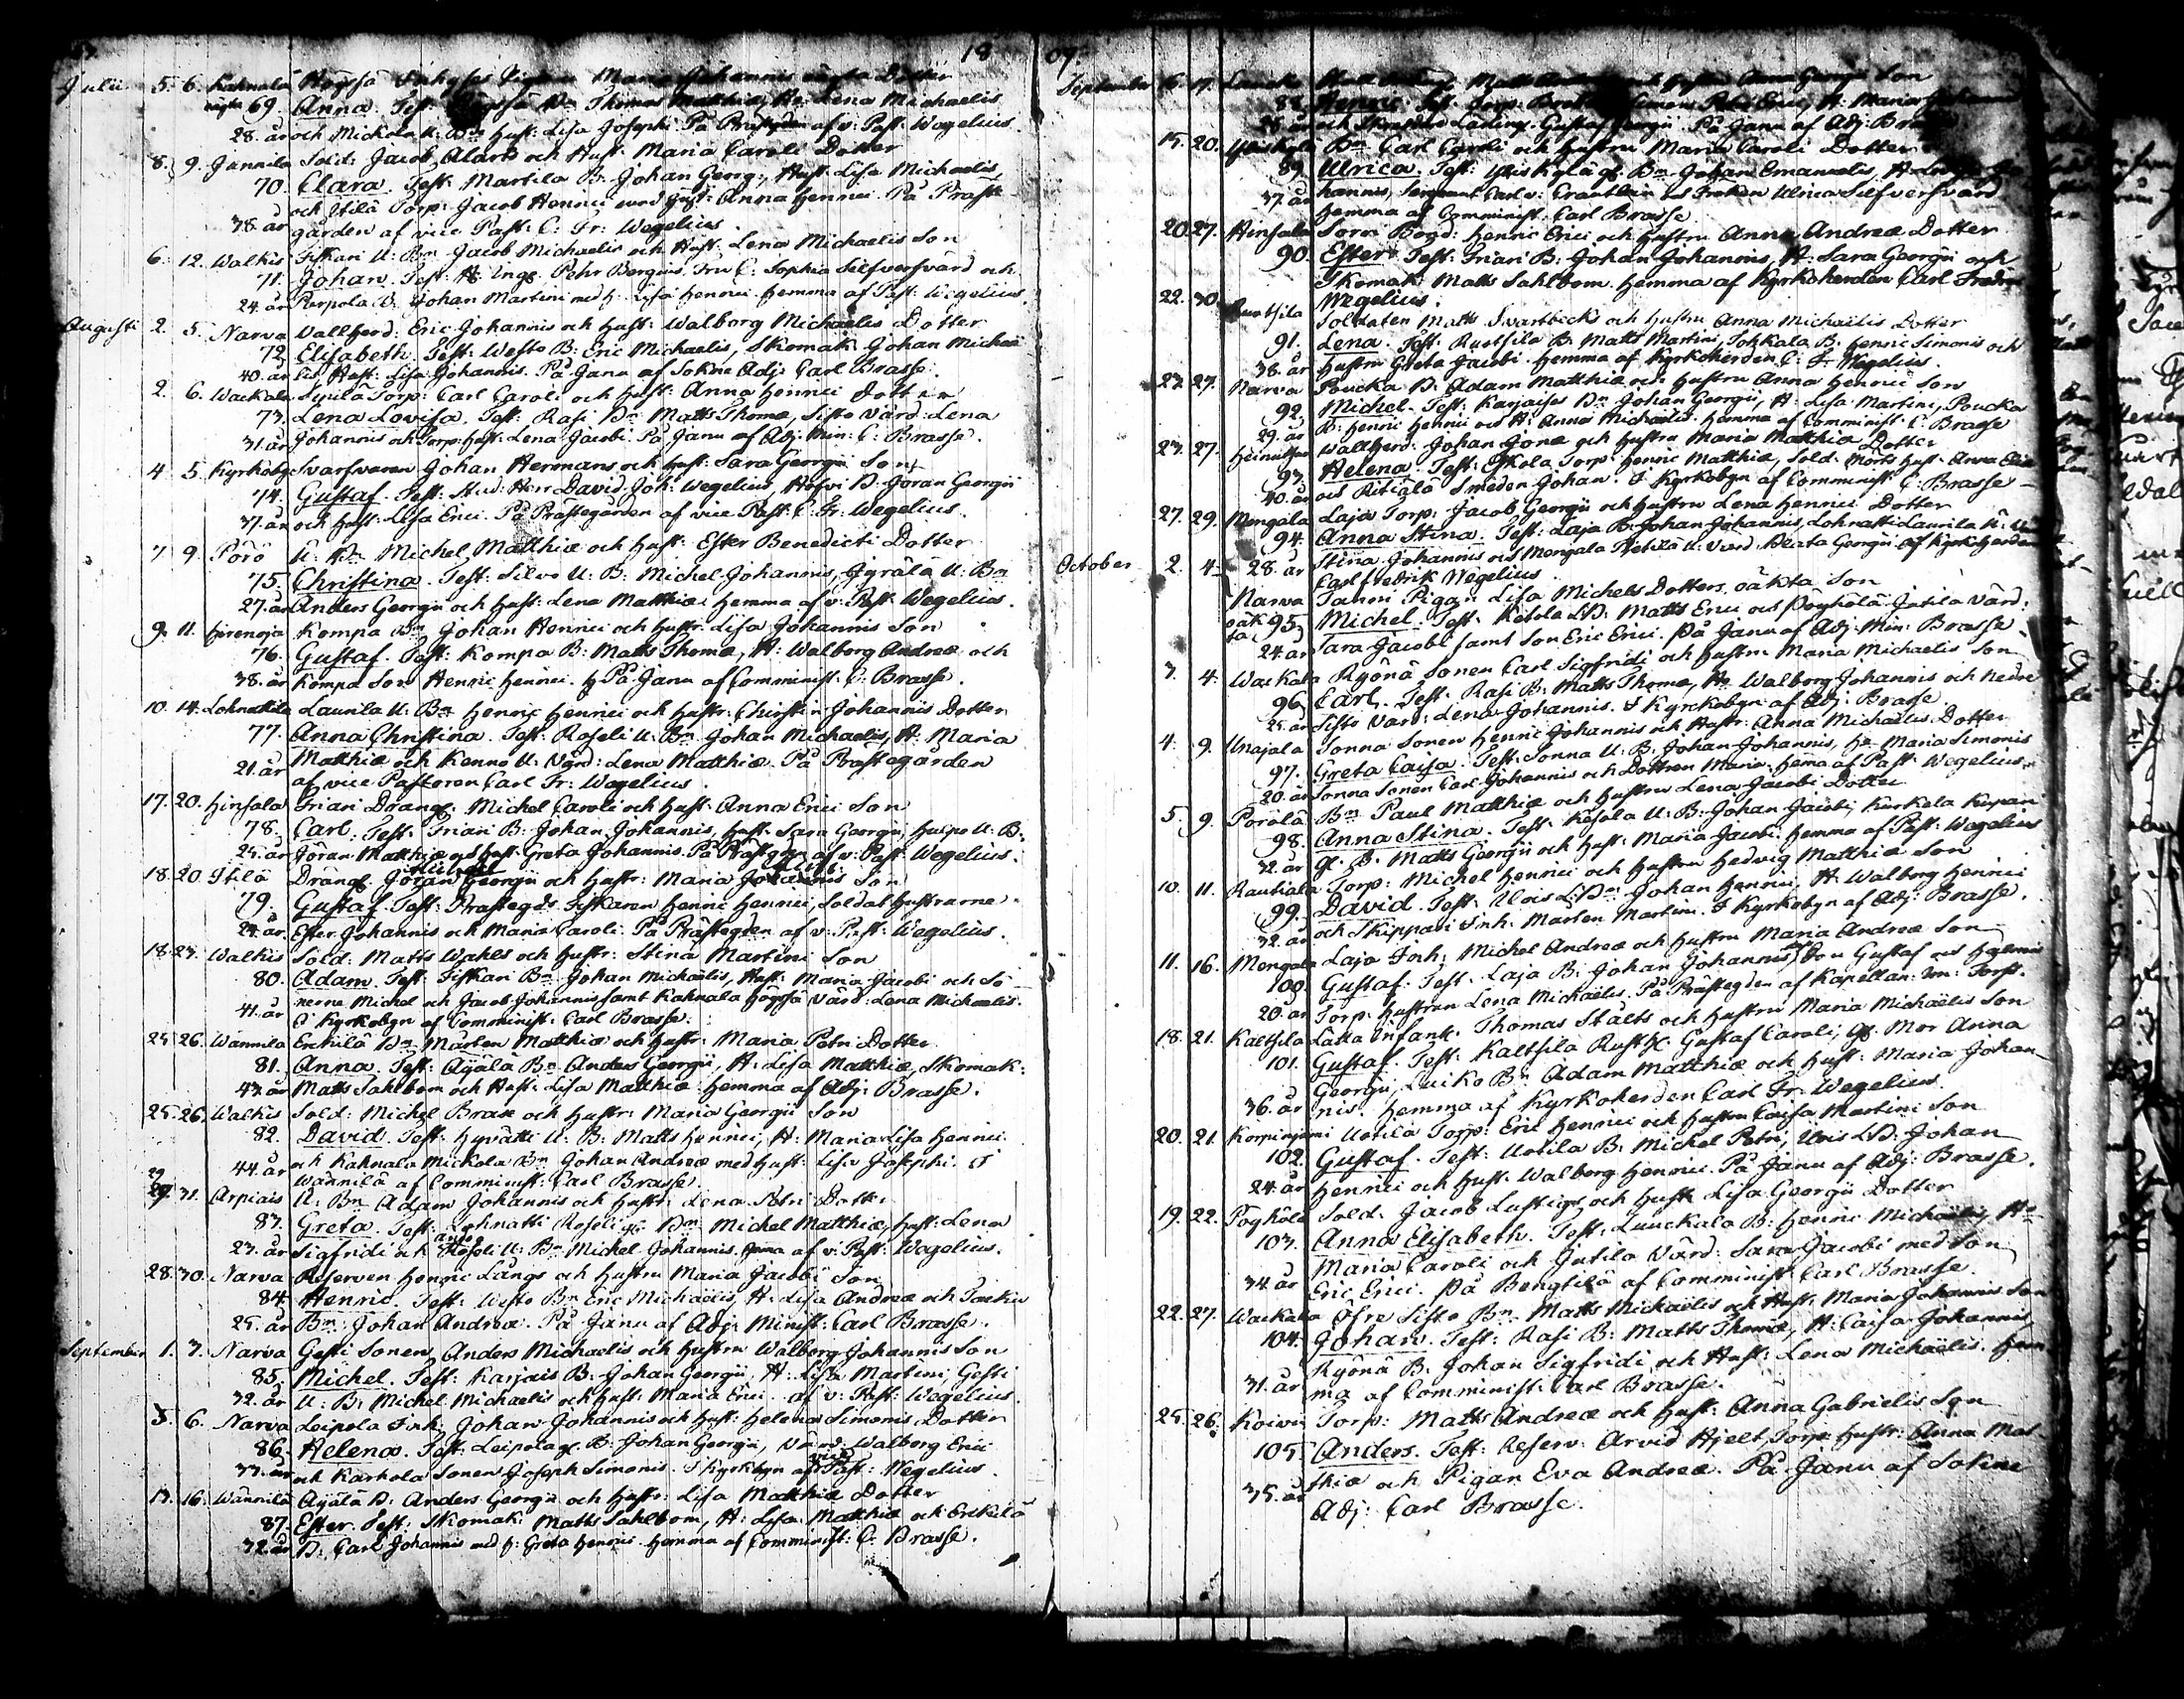 18
Julii 5. 6. Kahnala Höyssä Pigan Maria Johannis oägta Dotter
69. Anna. Test: Höyssä Bn Thomas Matthiæ, H. Lena Michaelis
28. år och Mickola U: Bn Hust: Lisa Josephi På Prästgden af v: Past: Wegelius.
8. 9. Jannila Sold: Jacob Alard och Hust: Maria Caroli Dotter
70. Clara. Test: Martila B: Johan Georg:, Hust: Lisa Michaelis,
och Itilä Torp: Jacob Henrici med Hust: Anna Henrici. På Präste
38. år gården af vice Past: C: Fr: Wegelius.
6. 12. Walkis Fiskari U: Bn Jacob Michaelis och Hust: Lena Michaelis Son
71. Johan. Test: H: Inge: Pehr Bergius. Fru C: Sophia Silfversvärd och
24. år Purpola B: Johan Martini med h: Lisa Henrici hemma af Past: Wegelius.
Augusti 2. 5. Narva Wallherd: Eric Johannis och Hust: Walborg Michaelis Dotter
72. Elisabeth. Test: Westo B: Eric Michaelis, Skomak: Johan Michaë
40. år lis Hust: Lisa Johannis. På Janu af Sokne Adj: Carl Brasse.
2. 6. Wackala Sipilä Torp: Carl Caroli och Hust: Anna Henrici Dotter
73. Lena Lovisa. Test: Rasi Bn Matts Thomæ, Sisto Värd: Lena
31. år Johannis och Torp: Hust: Lena Jacobi. På Janu af Adj: Min: C: Brasse.
4 5. Kyrkoby Svarfvaren Johan Hermans och Hust: Sara Georgii Son
74. Gustaf. Test: Stud: Herr David Joh: Wegelius, Hofvi B: Jöran Georgii
37. år och Hust: Lisa Erici. På Prästegården af vice Past: C: Fr: Wegelius.
7. 9. Pörö U: Bn Michel Matthiæ och Hust: Ester Benedicti Dotter
75. Christina. Test: Silvo U: B: Michel Johannis, Jyrälä U: Bn
27. år Anders Georgii och Hust: Lena Matthiæ. hemma af v: Past: Wegelius.
9. 11. Hirenoja Kompa Bn Johan Henrici och Hustr: Lisa Johannis Son
76. Gustaf. Test: Kompa B: Matts Thomæ, H: Walborg Andreæ och
38. år Kompa Son Henric Henrici. På Janu af Comminist: C: Brasse.
10. 14. Lohnattila Launila U: Bn Henric Henrici och Hustr: Christin Johannis Dotter
77. Anna Christina. Test: Roseli U: Bn Johan Michaelis, H: Maria
21. år Matthiæ och Kenno U: Värd: Lena Matthiæ. På Prästegården
af vice Pastoren Carl Fr: Wegelius.
17. 20. Hinsala Friari Dräng: Michel Caroli och Hust: Anna Erici Son
78. Carl. Test: Friari B: Johan Johannis, Hust: Sara Georgii, Hulpo U: B:
25. år Jöran Matthiæ och Hust: Greta Johannis På Prästgden af v: Past: Wegelius.
18. 20. Itilä Dräng: Jöran Georgii och Hustr: Maria Johannis Son
79. Gustaf. Test: Prästegds Fiskaren Henric Henrici, Soldat hustrarne
24. år Ester Johannis och Maria Caroli. På Prästegden af v: Past: Wegelius.
18. 23. Walkis Sold: Matts Wahls och Hustr: Stina Martini Son
80. Adam. Test: Fiskari Bn Johan Michaelis, Hust: Maria Jacobi och Sö
nerne Michel och Jacob Johannis samt Kahnala Höyssä Värd: Lena Michaelis.
41. år I Kyrkobyn af Comminist: Carl Brasse.
25. 26. Wännila Erckilä Bn Mårten Matthiæ och Hustr: Maria Petri Dotter
81. Anna. Test: Äyälä Bn Anders Georgii, H: Lisa Matthiæ, Skomak:
43. år Matts Sahlbom och Hust: Lisa Matthiæ hemma af Adj: Brasse.
25. 26. Walkis Sold: Michel Brask och Hustr: Maria Georgii Son
82. David. Test: Hyvätti U: B: Matts Henrici, H: Maria Lisa Henrici
och Kahnala Mickola Bn Johan Andreæ med Hust: Lisa Josephi. I
44. år Wännilä af Comminist: Carl Brasse.
29. 31. Arpiais U: Bn Adam Johannis och Hustr: Lena Petri Dotter
83. Greta. Test: Lohnatti Roseli g: Bn Michel Matthiæ, Hust: Lena
23. år Sigfridi och Roseli U: Bn Michel Johannis. hema af v: Past: Wegelius.
28. 30. Narva Reserven Henric Långs och Hustru Maria Jacobi Son
84. Henric. Test: Westo Bn Eric Michaelis, H: Lisa Andreæ och Tacku
25. år Bn Johan Andreæ. På Janu af Adj: Minist: Carl Brasse.
September 1. 3. Narva Gesti Sonen Anders Michaelis och Hustru Walborg Johannis Son
85. Michel. Test: Karjais B: Johan Georgii, H: Lisa Martini, Gesti
32. år U: B: Michel Michaelis och Hust: Maria Erici. af v: Past: Wegelius.
3. 6. Narva Leipola Inh: Johan Johannis och Hust: Helena Simonis Dotter
86. Helena. Test: Leipola g: B: Johan Georgii, Värd: Walborg Erici
33. år och Karhola Sonen Joseph Simonis. I Kyrkbyn af vice Past: Wegelius.
13. 16. Wännilä Äyälä B: Anders Georgii och Hustr: Lisa Matthiæ Dotter
87. Ester. Test: Skomak: Matts Sahlbom, H: Lisa Matthiæ och Erckilä
32. år B: Carl Johannis med h: Greta Henrici. hemma af Comminist: C: Brasse.
09.
September 16. 17. Anna Georgii Son
88. Henric. Test: Torp: Simon, H: Maria
25. år Gustaf Georgii På Janu af Adj: Brasse
15. 20. Bn Carl Caroli och Hustru Maria Caroli Dotter
89. Ulrica. Test: g: Bn Johan Emanuelis, H:
37. år hannis, Sergeant Carl v: och Fröken Ulrica Silfversvärd
hemma af Comminist: Carl Brasse.
20. 27. Hinsala Sorri Bond: Henric Erici och Hustru Anna Andreæ Dotter
90. Ester. Test: Friari B: Johan Johannis, H: Sara Georgii och
Skomak: Matts Sahlbom. hemma af Kyrkoherden Carl Fredric
Wegelius.
22. 30. Ruotsila Soldaten Matts Svartbecks och Hustru Anna Michaëlis Dotter
91. Lena. Test: Ruotsila B: Matts Martini, Tohkala B: Henric Simonis och
38. år Hustru Greta Jacobi. hemma af Kyrkoherden C: Fr: Wegelius.
23. 27. Narva Poucka B: Adam Matthiæ och Hustru Anna Henrici Son
92. Michel. Test: Karjais Bn Johan Georgii, H: Lisa Martini, Poucka
29. år B: Henric Henrici och H: Anna Michaelis. hemma af Comminist: C: Brasse
23. 27. Wallherd: Johan Jonæ och Hustru Maria Matthiæ Dotter
93. Helena. Test: Eskola Torp: Henric Matthiæ, Sold: Mörts Hust: Anna
40. år och Ritiälä Smeden Johan. I Kyrkobyn af Comminist: C: Brasse
27. 29. Mengälä Laja Torp: Jacob Georgii och Hustru Lena Henrici Dotter
94. Anna Stina. Test: Laja B: Johan Johannis, Lohnatti Launila U:
28. år Stina Johannis och Mengala Hetilä U: Värd: Beata Georgii af Kyrkoherden
Carl Fredrik Wegelius
October 2. 4. Narva Tanni Pigan Lisa Michels Dotters, oäkta Son
oäkta 95. Michel. Test: Ketola LB: Matts Erici och Pöyhölä Jutila Värd:
24. år Sara Jacobi samt Son Eric Erici. På Janu af Adj: Min: Brasse.
3. 4. Wackala Ryönä Sonen Carl Sigfridi och Hustru Maria Michaelis Son
96. Carl. Test: Rasi B: Matts Thomæ, H: Walborg Johannis och Nedre
25. år Sisto Värd: Lena Johannis. I Kyrckobyn af Adj: Brasse.
4. 9. Unajala Sonna Sonen Henric Johannis och Hustr: Anna Michaelis Dotter
97. Greta Caisa. Test: Sonna U: B: Johan Johannis, H: Maria Simonis
20. år Sonna Sonen Carl Johannis och Dottren Maria. hema af Past: Wegelius.
5. 9. Poralä Bn Paul Matthiæ och Hustru Lena Jacobi Dotter
98. Anna Stina. Test: Kesola U: B: Johan Jacobi, Kurkela
32. år g: B: Matts Georgii och Hust: Maria Jacobi hemma af Past: Wegelius
10. 11. Rautiala Torp: Michel Henrici och Hustru Hedvig Matthiæ Son
99. David. Test: Uois LBn Johan Henrici, H: Walborg Henrici
32. år och Skippari Inh: Mårten Martini. I Kyrkobyn af Adj: Brasse.
11. 16. Mengala Laja Inh: Michel Andreæ och Hustru Maria Andreæ Son
100. Gustaf. Test: Laja B: Johan Johannis, Son Gustaf och
20. år Torp: Hustrun Lena Michaëlis. På Prästegden af Kapellan: Im: Forst.
18. 21. Kaltsila Lätta Infant: Thomas Stålts och Hustru Maria Michaëlis Son
101. Gustaf. Test: Kaltsila Rusth: Gustaf Caroli, g: Mor Anna
Georgii, Luiko Bn Adam Matthiæ och Hust: Maria Johan
36. år nis. hemma af Kyrkoherden Carl Fr: Wegelius.
20. 21. Korpiniemi Uotila Torp: Eric Henrici och Hustru Caisa Martini Son
102. Gustaf. Test: Uotila B: Michel Petri, Uois LB: Johan
24. år Henrici och Hust: Walborg Henrici. På Janu af Adj: Brasse.
19. 22. Pöyhölä Sold: Jacob Lustig och Hustr: Lisa Georgii Dotter
103. Anna Elisabeth. Test: Luuckala B: Henric Michaëlis, H:
Maria Caroli och Jutila Värd: Sara Jacobi med Son
34. år Eric Erici. På Bengtilä af Comminist: Carl Brasse.
22. 27. Wackala Öfre Sisto Bn Matts Michaëlis och Hust: Maria Johannis Son
104. Johan. Test: Rasi B: Matts Thomæ, H: Caisa Johannis,
Ryönä B: Johan Sigfridi och Hust: Lena Michaëlis. hem
31. år ma af Comminist: Carl Brasse.
25. 26. Koivu Torp: Matts Andreæ och Hust: Anna Gabrielis Son
105. Anders. Test: Reserv: Arvid Hjelt, Torp: Hustr: Anna Mat
thiæ och Pigan Eva Andreæ. På Janu af Sokne
35. år Adj: Carl Brasse.